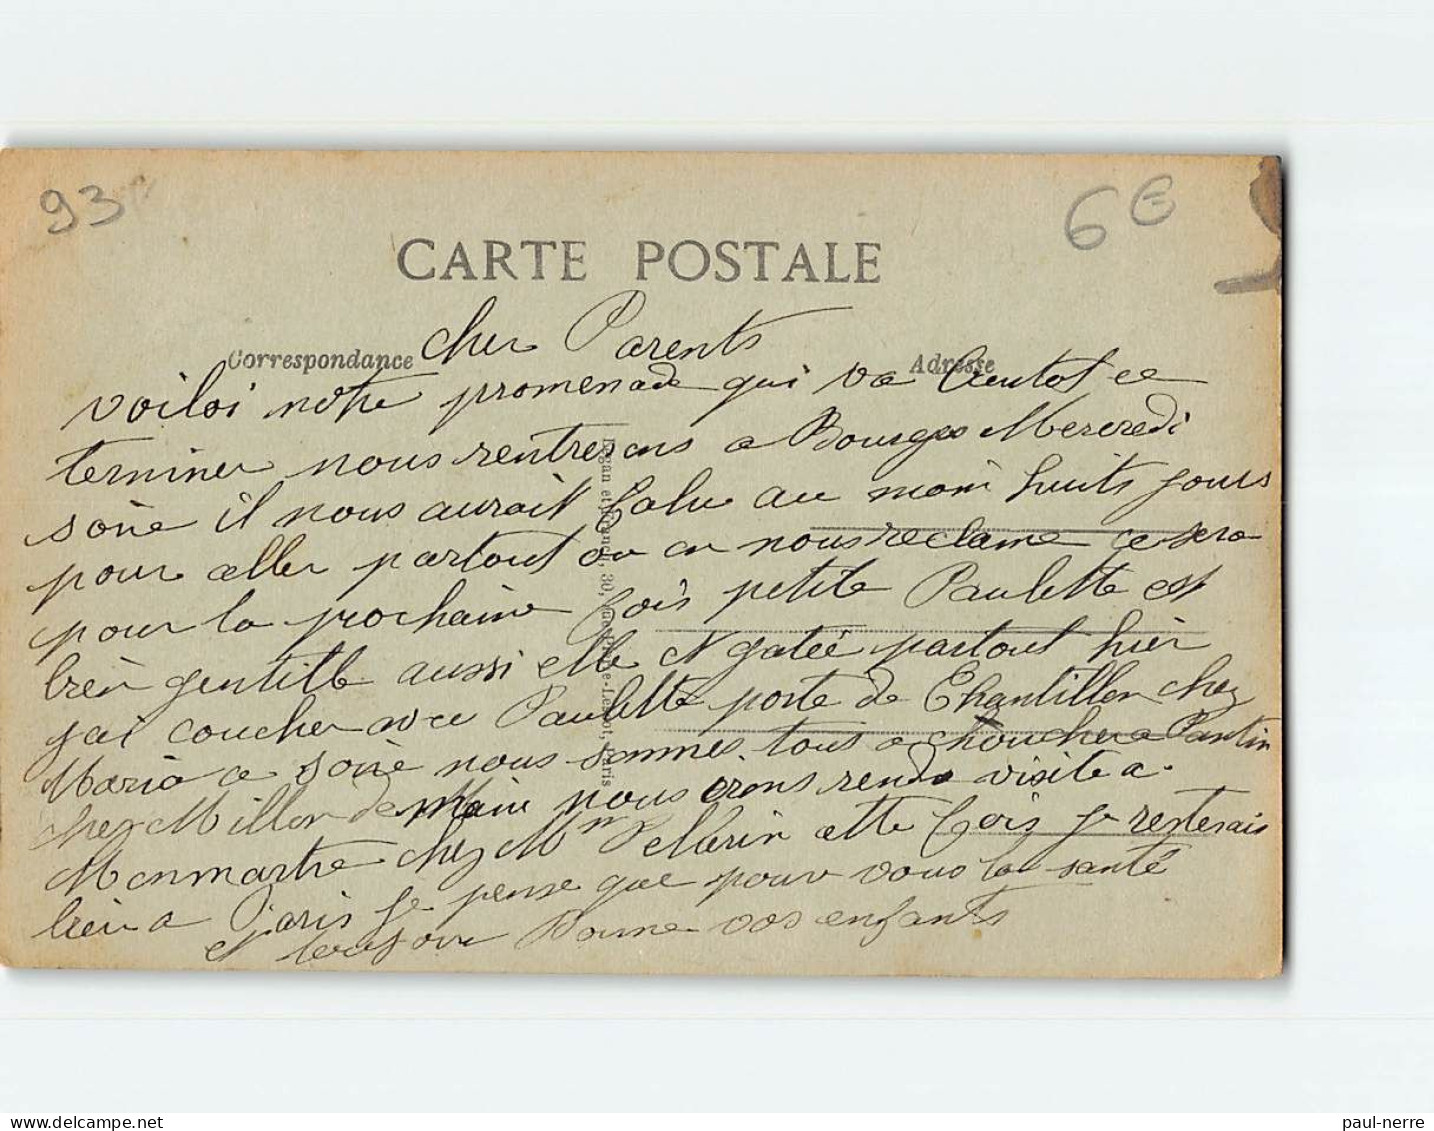 93
6€
CARTE POSTALE
Correspondance
Adresse
cher Parents
voiloi notre promenade qui va bientot ce
terminer nous rentrerons a Bourges Mercredi
soire il nous aurait falu au moin huits jours
pour aller partout ou on nous reclame ce sera
pour la prochaine fois petite Paulette est
bien gentille aussi elle et gatée partout hier
jai coucher avec Paulette porte de Chantillon chez
Maria a soire nous sommes tous a chouchera Pantin
chez Millon demain nous irons rendre visite a
Monmartre chez Mr Pelarin cette fois je resterais
bien a Paris je pense que pour vous la santé
et toujour bonne vos enfants
30, Paris
delcampe.net
paul-nerre